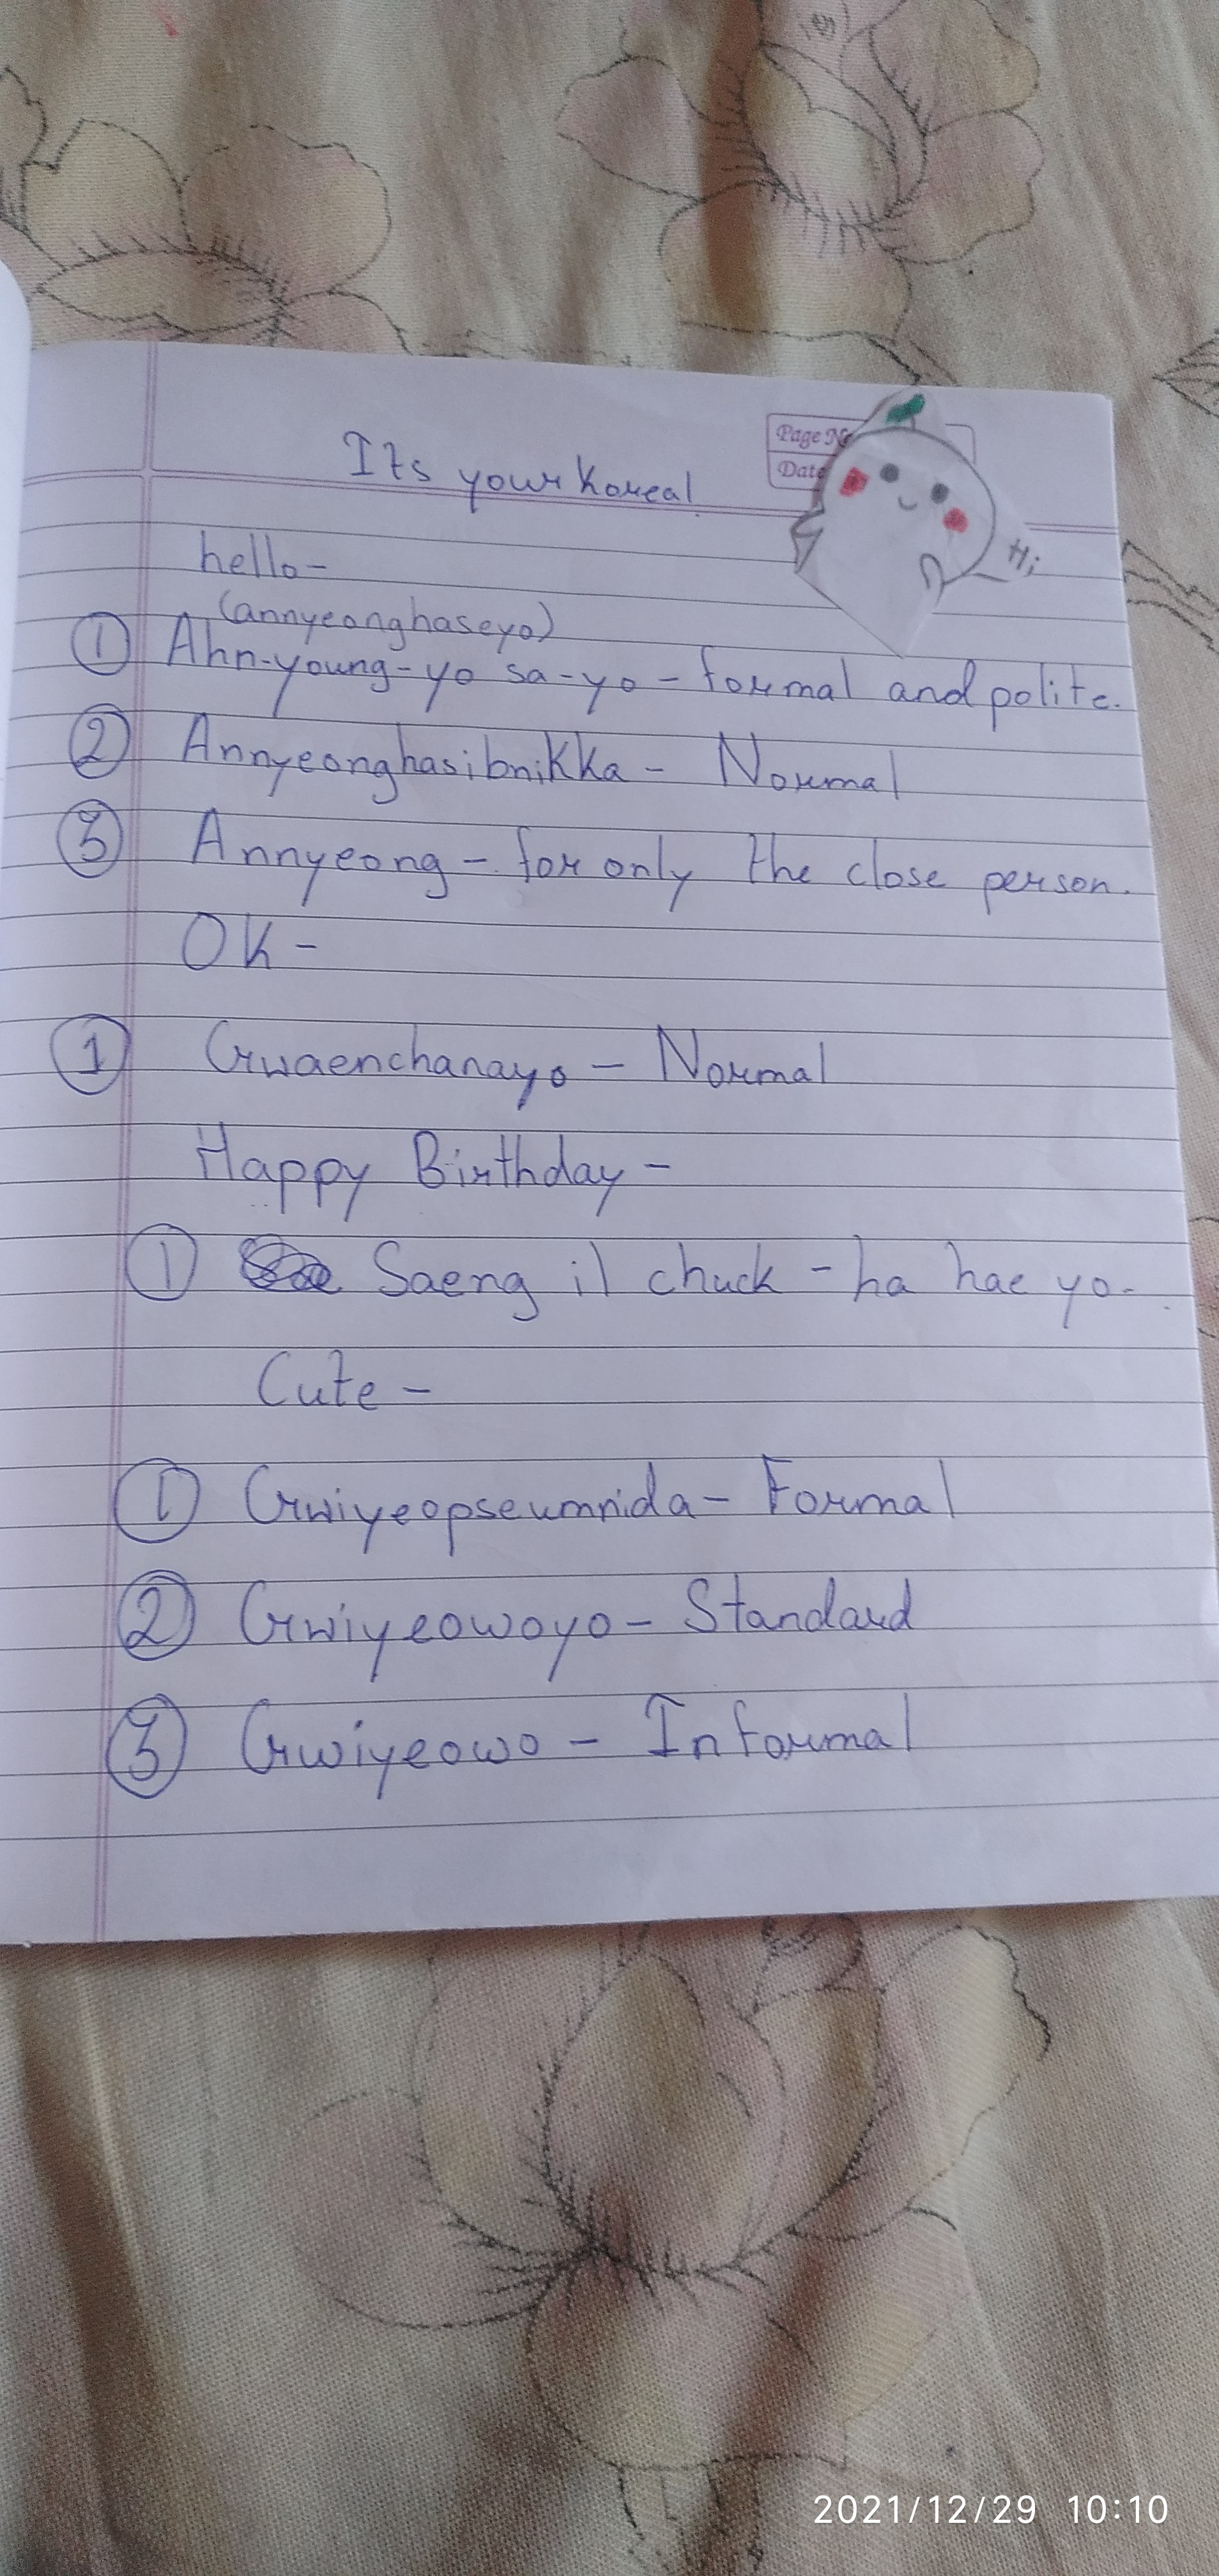 Its your Korea!
Page No
Date
Hi
hello-
(annyeonghaseyo)
① Ahn-young-yo sa-yo - formal and polite.
② Annyeonghasibnikka - Normal
③ Annyeong - for only the close person.
OK -
① Gwaenchanayo - Normal
Happy Birthday -
① Saeng il chuck - ha hae yo.
Cute -
① Gwiyeopseumnida - Formal
② Gwiyeowoyo - Standard
③ Gwiyeowo - Informal
2021/12/29 10:10